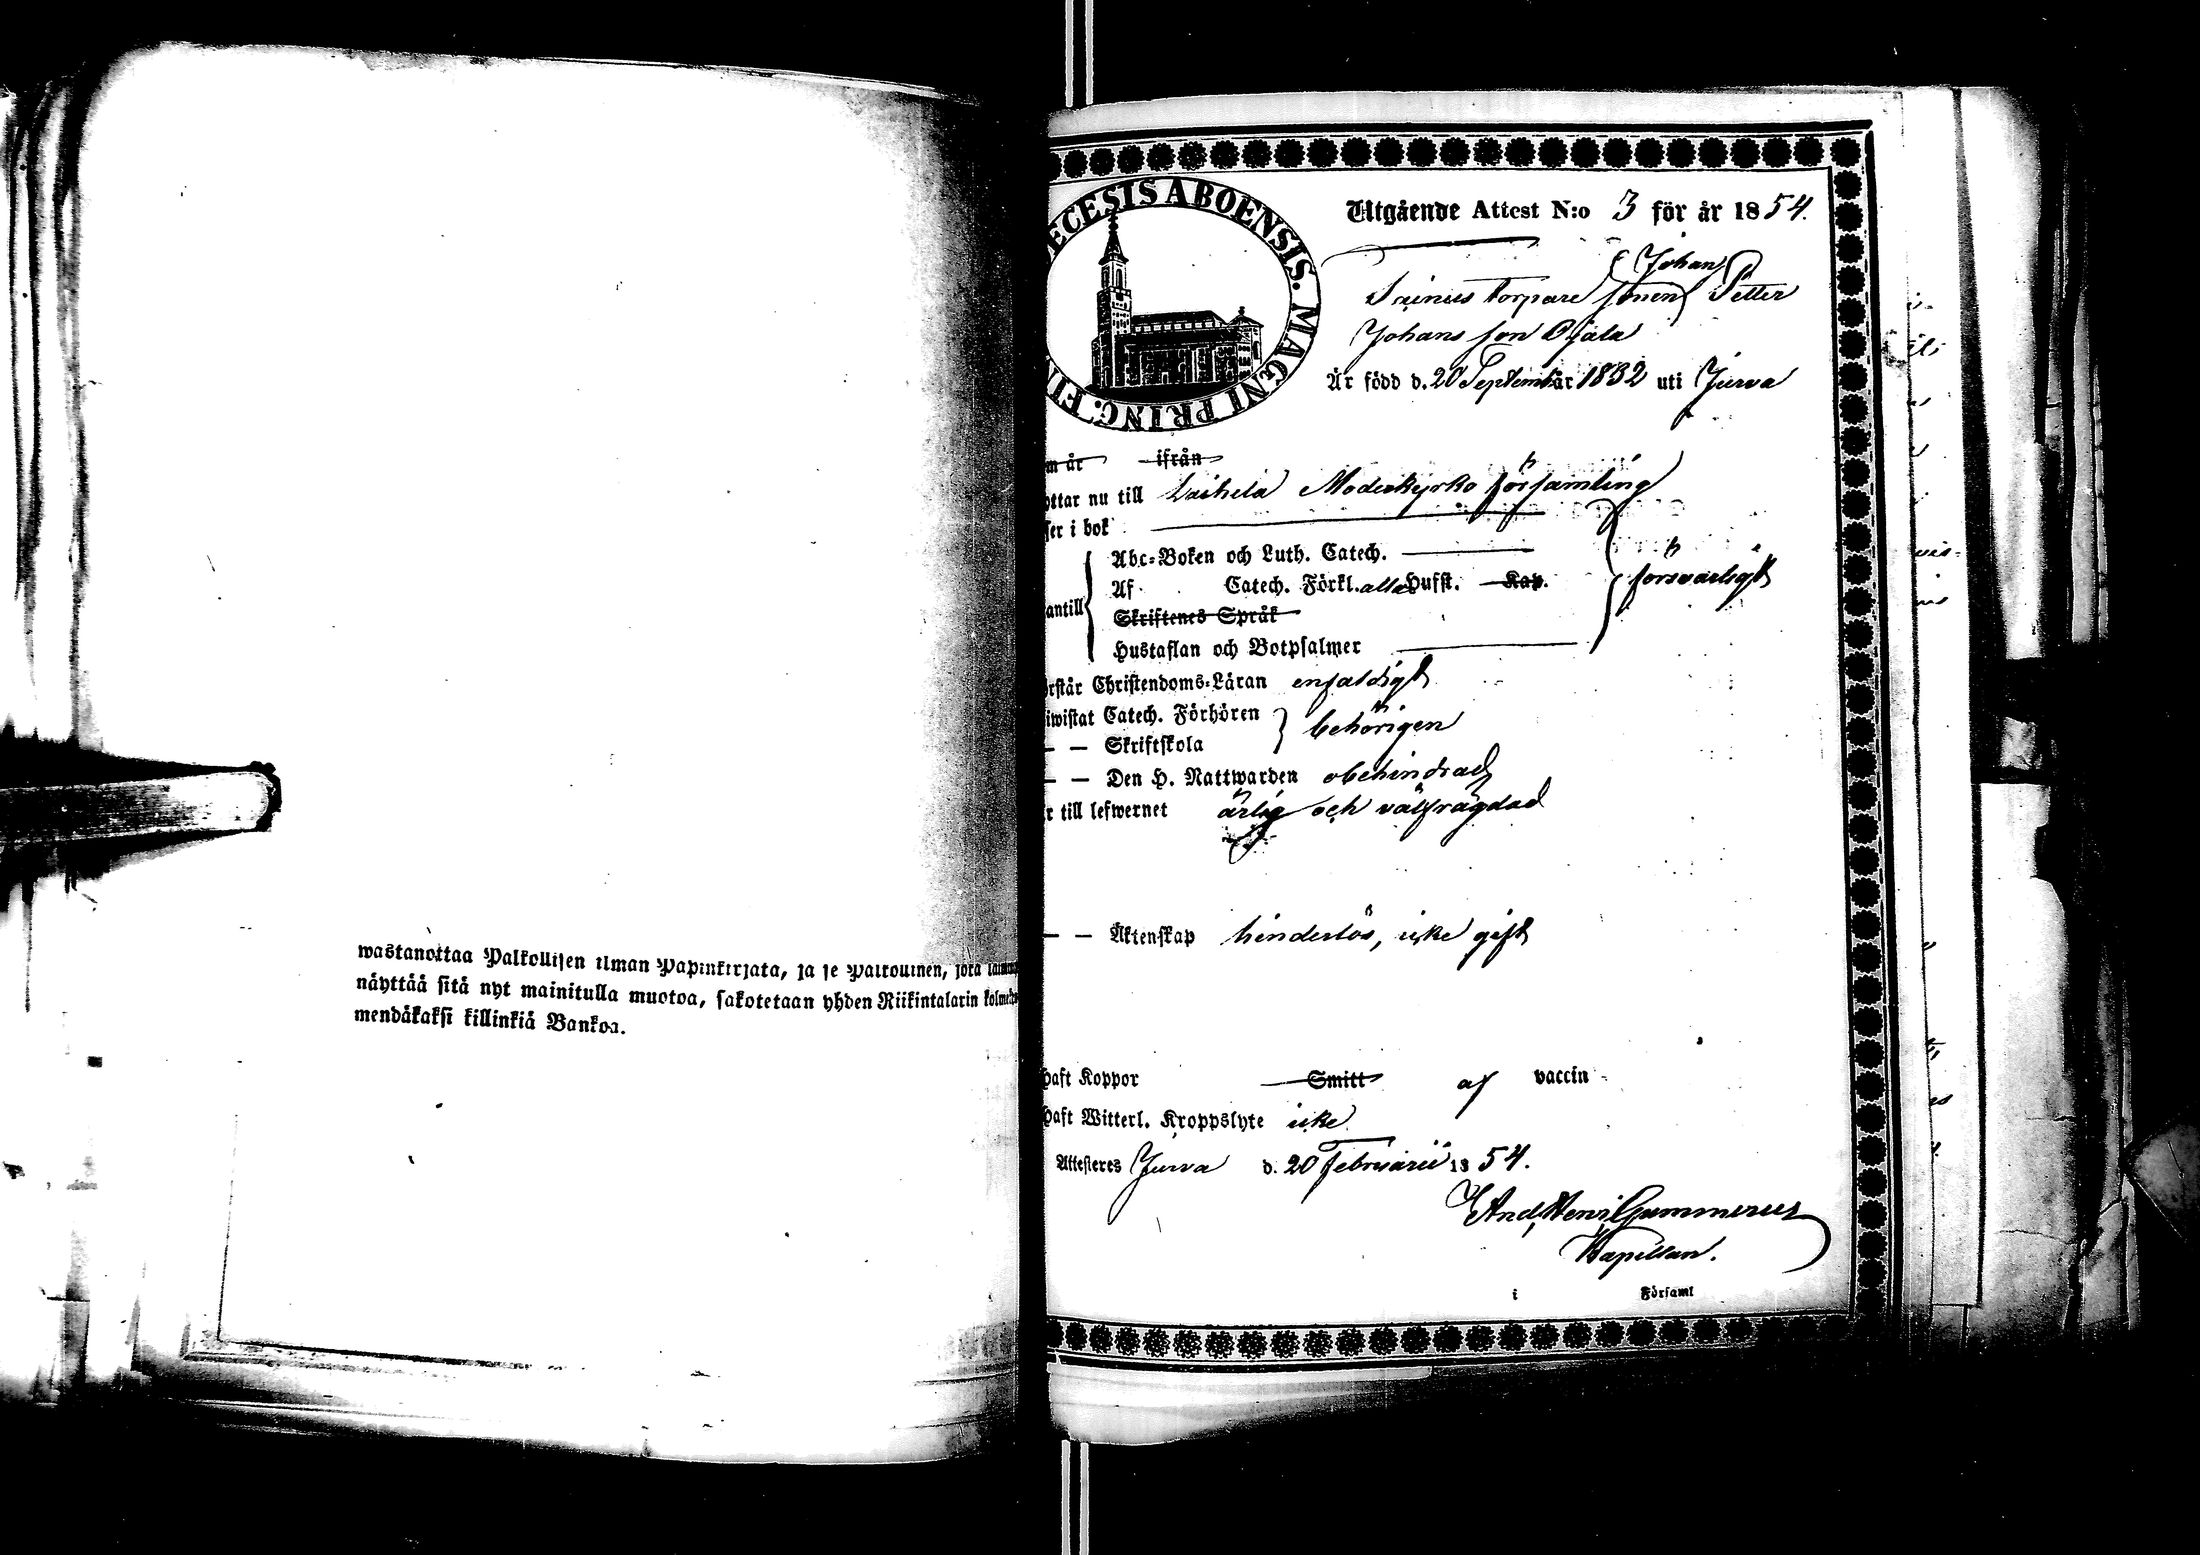 wastanottaa Palkollisen ilman Papinkirjata, ja se Palkollinen, joka
näyttää sitä nyt mainitulla muotoa, sakotetaan yhden Riikintalarin kolme
mendäkaksi killinkiä Bankoa.
ECESIS ABOENSIS. MAGNI PRINC. FIN
Utgående Attest N:o 3 för år 1854.
Johan
torpare sonen Petter
Johans son Ojala
Är född d. 20 September 1832 uti Jurva
m år ifrån
ottar nu till Laihela Moderkyrko församling
ser i bok
Abc-Boken och Luth. Catech.
Af Catech. Förkl. alla Hufst. Kap. försvarligt
antill
Skriftenes Språk
Hustaflan och Botpsalmer
örstår Christendoms-Läran enfaldigt
iwistat Catech. Förhören behörigen
— — Skriftskola
— — Den H. Nattwarden obehindrad
r till lefwernet ärlig och välfrägdad
— — Äktenskap hinderlös, icke gift
haft Koppor Smitt af vaccin
haft Witterl. Kroppslyte icke
Attesteres Jurva d. 20 Februarii 1854.
And. Henr. Gummerus
Kapellan.
i Församl